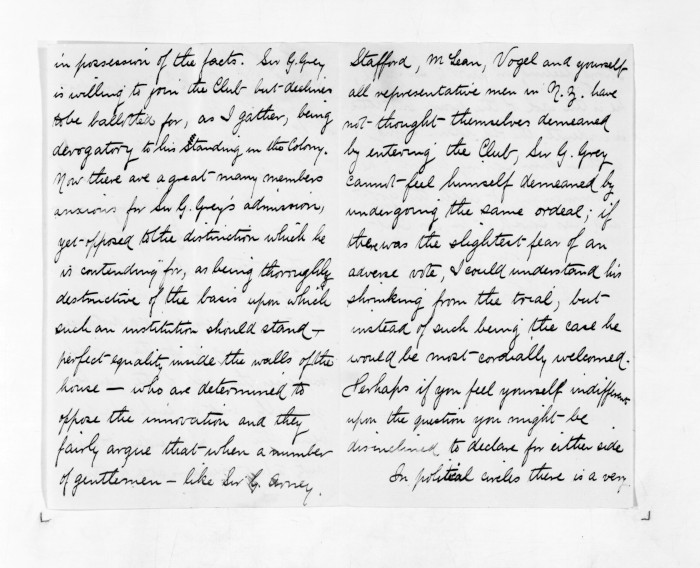 in possession of the facts. Sir G. Grey
is willing to join the Club but declines
to be ballotted for, as I gather, being
derogatory to his Standing in the Colony.
Now there are a great many members
anxious for Sir G. Grey's admission,
yet opposed to the distinction which he
is contending for, as being thoroughly
destructive of the basis upon which
such an institution should stand –
perfect equality inside the walls of the
house – who are determined to
oppose the innovation and they
fairly argue that when a number
of gentlemen – like Sir G. Arney,
Stafford, McLean, Vogel and yourself
all representative men in N.Z. have
not thought themselves demeaned
by entering the Club, Sir G. Grey
cannot feel himself demeaned by
undergoing the same ordeal; if
there was the slightest fear of an
adverse vote, I could understand his
shrinking from the trial, but
instead of such being the case he
would be most cordially welcomed.
Perhaps if you feel yourself indifferent
upon the question you might be
disinclined to declare for either side
In political circles there is a very